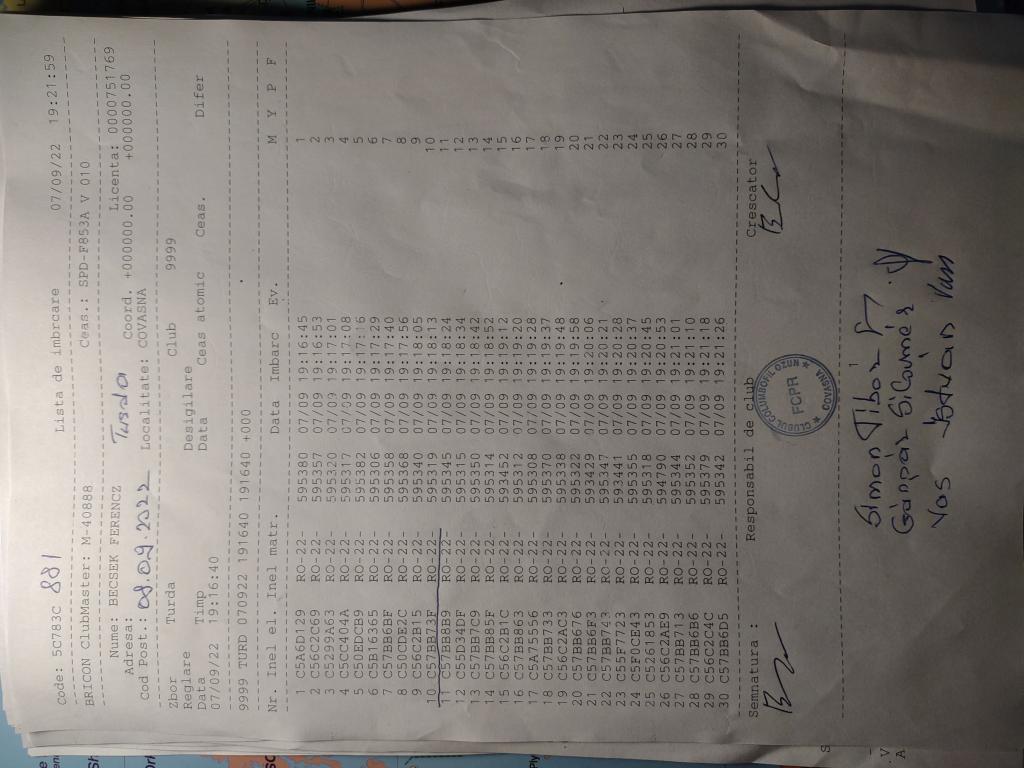 Code: 5C783C 881 Lista de imbrcare 07/09/22 19:21:59
BRICON ClubMaster: M-40888 Ceas.: SPD-F853A V 010
Nume: BECSEK FERENCZ Licenta: 0000751769
Adresa: Turda Coord. +000000.00 +000000.00
Cod Post.: 08.09.2022 Localitate: COVASNA
Zbor Turda Club 9999
Reglare Desigilare
Data Timp Data Ceas atomic Ceas. Difer
07/09/22 19:16:40
9999 TURD 070922 191640 191640 +000
Nr. Inel el. Inel matr. Data Imbarc Ev. M Y P F
1 C5A6D129 RO-22- 595380 07/09 19:16:45 1
2 C56C2C69 RO-22- 595357 07/09 19:16:53 2
3 C5293A63 RO-22- 595320 07/09 19:17:01 3
4 C5CC404A RO-22- 595317 07/09 19:17:08 4
5 C50EDCB9 RO-22- 595382 07/09 19:17:16 5
6 C5B16365 RO-22- 595306 07/09 19:17:29 6
7 C57BB6BF RO-22- 595358 07/09 19:17:40 7
8 C50CDE2C RO-22- 595368 07/09 19:17:56 8
9 C56C2B15 RO-22- 595340 07/09 19:18:05 9
10 C57BB73F RO-22- 595319 07/09 19:18:13 10
11 C57BB8B9 RO-22- 595345 07/09 19:18:24 11
12 C55D34DF RO-22- 595315 07/09 19:18:34 12
13 C57BB7C9 RO-22- 595350 07/09 19:18:42 13
14 C57BB85F RO-22- 595314 07/09 19:18:52 14
15 C56C2B1C RO-22- 593452 07/09 19:19:12 15
16 C57BB863 RO-22- 595312 07/09 19:19:20 16
17 C5A75556 RO-22- 595308 07/09 19:19:28 17
18 C57BB733 RO-22- 595370 07/09 19:19:37 18
19 C56C2AC3 RO-22- 595338 07/09 19:19:48 19
20 C57BB676 RO-22- 595322 07/09 19:19:58 20
21 C57BB6F3 RO-22- 593429 07/09 19:20:06 21
22 C57BB743 RO-22- 595347 07/09 19:20:21 22
23 C55F7723 RO-22- 593441 07/09 19:20:28 23
24 C5F0CE43 RO-22- 595355 07/09 19:20:37 24
25 C5261853 RO-22- 595318 07/09 19:20:45 25
26 C56C2AE9 RO-22- 594790 07/09 19:20:53 26
27 C57BB713 RO-22- 595344 07/09 19:21:01 27
28 C57BB6B6 RO-22- 595352 07/09 19:21:10 28
29 C56C2C4C RO-22- 595379 07/09 19:21:18 29
30 C57BB6D5 RO-22- 595342 07/09 19:21:26 30
Semnatura : Responsabil de club Crescator
CLUBUL COLUMBOFIL OZUN
FCPR
COVASNA
Simon Tibor
Gáspár
Vas István Vas